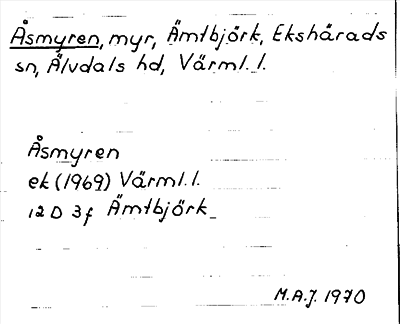 Åsmyren, myr, Ämtbjörk, Ekshärads
sn, Älvdals hd, Värml. l.
Åsmyren
ek (1969) Värml. l.
12 D 3 f Ämtbjörk
M.A.J. 1970